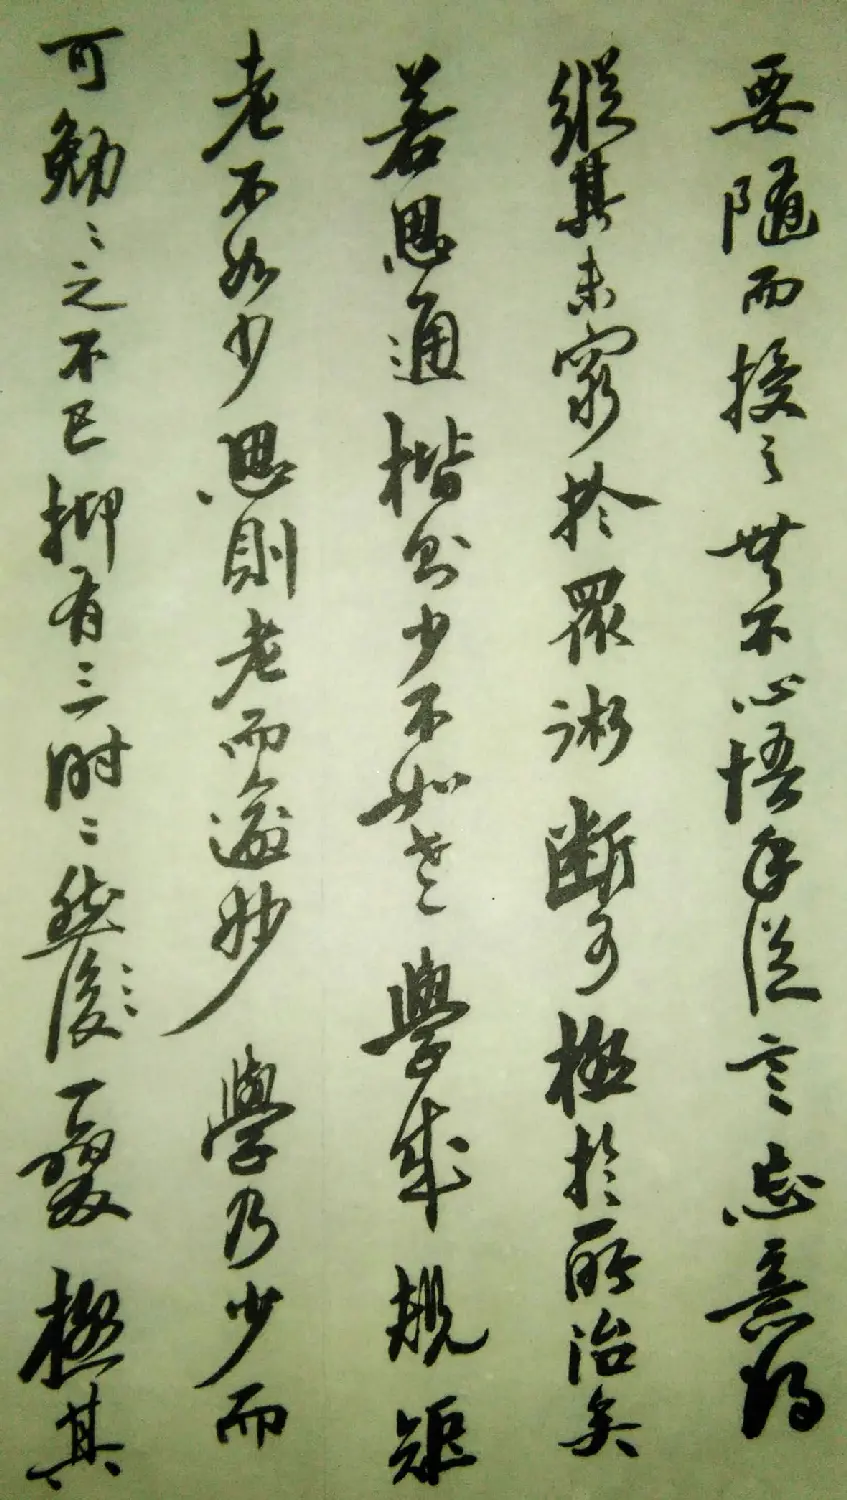 要隨而授之無不心悟手從言忘意得
縱其未窮於眾術斷可極於所治矣
若思通楷則少不如老學成規矩
老不如少思則老而逾妙學乃少而
可勉勉之不已抑有三時時然後一變極其